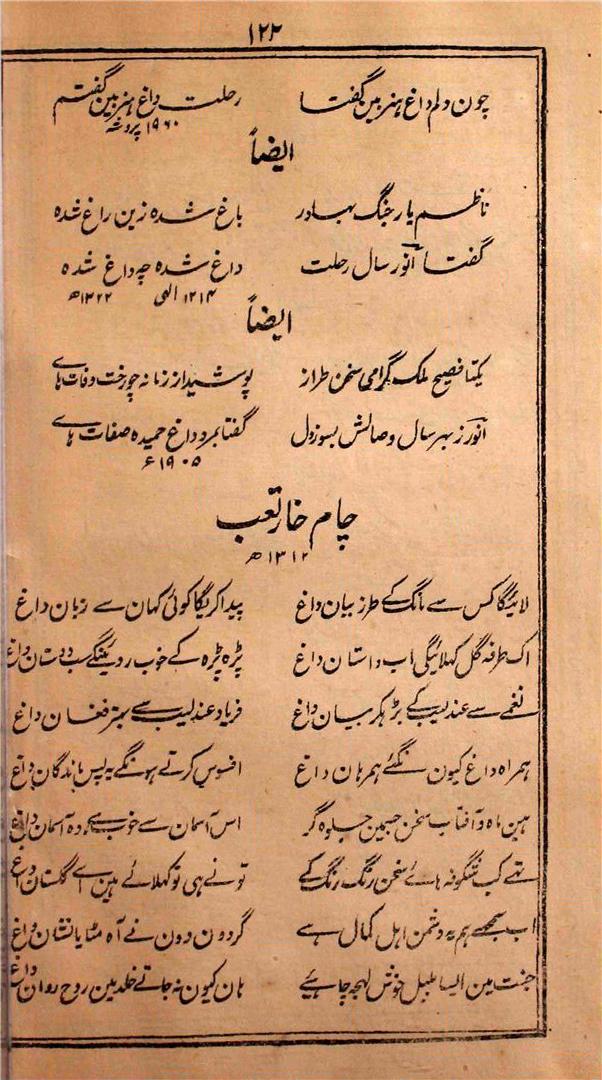 ۱۲۲
چون دلم داغ ہنر بین گفتا رحلت داغ ہنر بین گفتم
۱۹۶۰
ایضاً
ناظم یار جنگ بہادر باغ شدہ زین راغ شدہ
گفتا انور سال رحلت داغ شدہ چہ داغ شدہ
۱۲۱۴ الہی ۱۳۲۲ھ
ایضاً
یکتا فصیح ملک گرامی سخن طراز پوشید از زمانہ چو رخت وفات ہاے
انور ز بہر سال وصالش بسوز دل گفتا بمرد داغ حمیدہ صفات ہاے
۱۹۰۵ ء
جام خار تعب
۱۳۱۲ھ
لائیگا کس سے مانگ کے طرز بیان داغ پیدا کریگا کوئی کہان سے زبان داغ
اک طرفہ گل کہلائیگی اب داستان داغ پڑہ پڑہ کے خوب روئینگے سب دوستان داغ
نغمے سے عندلیب کے بڑہکر بیان داغ فریاد عندلیب سے بہتر فغان داغ
ہمراہ داغ کیون نگئے ہمرہان داغ افسوس کرتے ہونگے یہ پس ماندگان داغ
ہین ماہ و آفتاب سخن جسمین جلوہ گر اس آسمان سے خوب ہے وہ آسمان داغ
تہے کب شگوفہ ہائے سخن رنگ رنگ کے تونے ہی تو کہلائے ہین اے گلستان داغ
اب سمجھے ہم یہ دشمن اہل کمال ہے گردون دون نے آہ مٹایا نشان داغ
جنت مین ایسا بلبل خوش لہجہ چاہئیے ہان کیون نہ جاتے خلد مین روح روان داغ